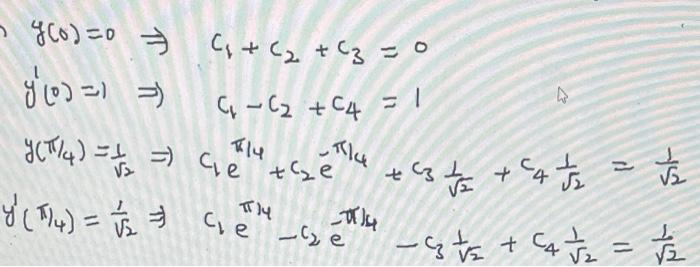 y(0)=0 ⇒ C₁ + C₂ + C₃ = 0
y'(0)=1 ⇒ C₁ - C₂ + C₄ = 1
y(π/4) = 1/√2 ⇒ C₁e^(π/4) + C₂e^(-π/4) + C₃ 1/√2 + C₄ 1/√2 = 1/√2
y'(π/4) = 1/√2 ⇒ C₁e^(π/4) - C₂e^(-π/4) - C₃ 1/√2 + C₄ 1/√2 = 1/√2